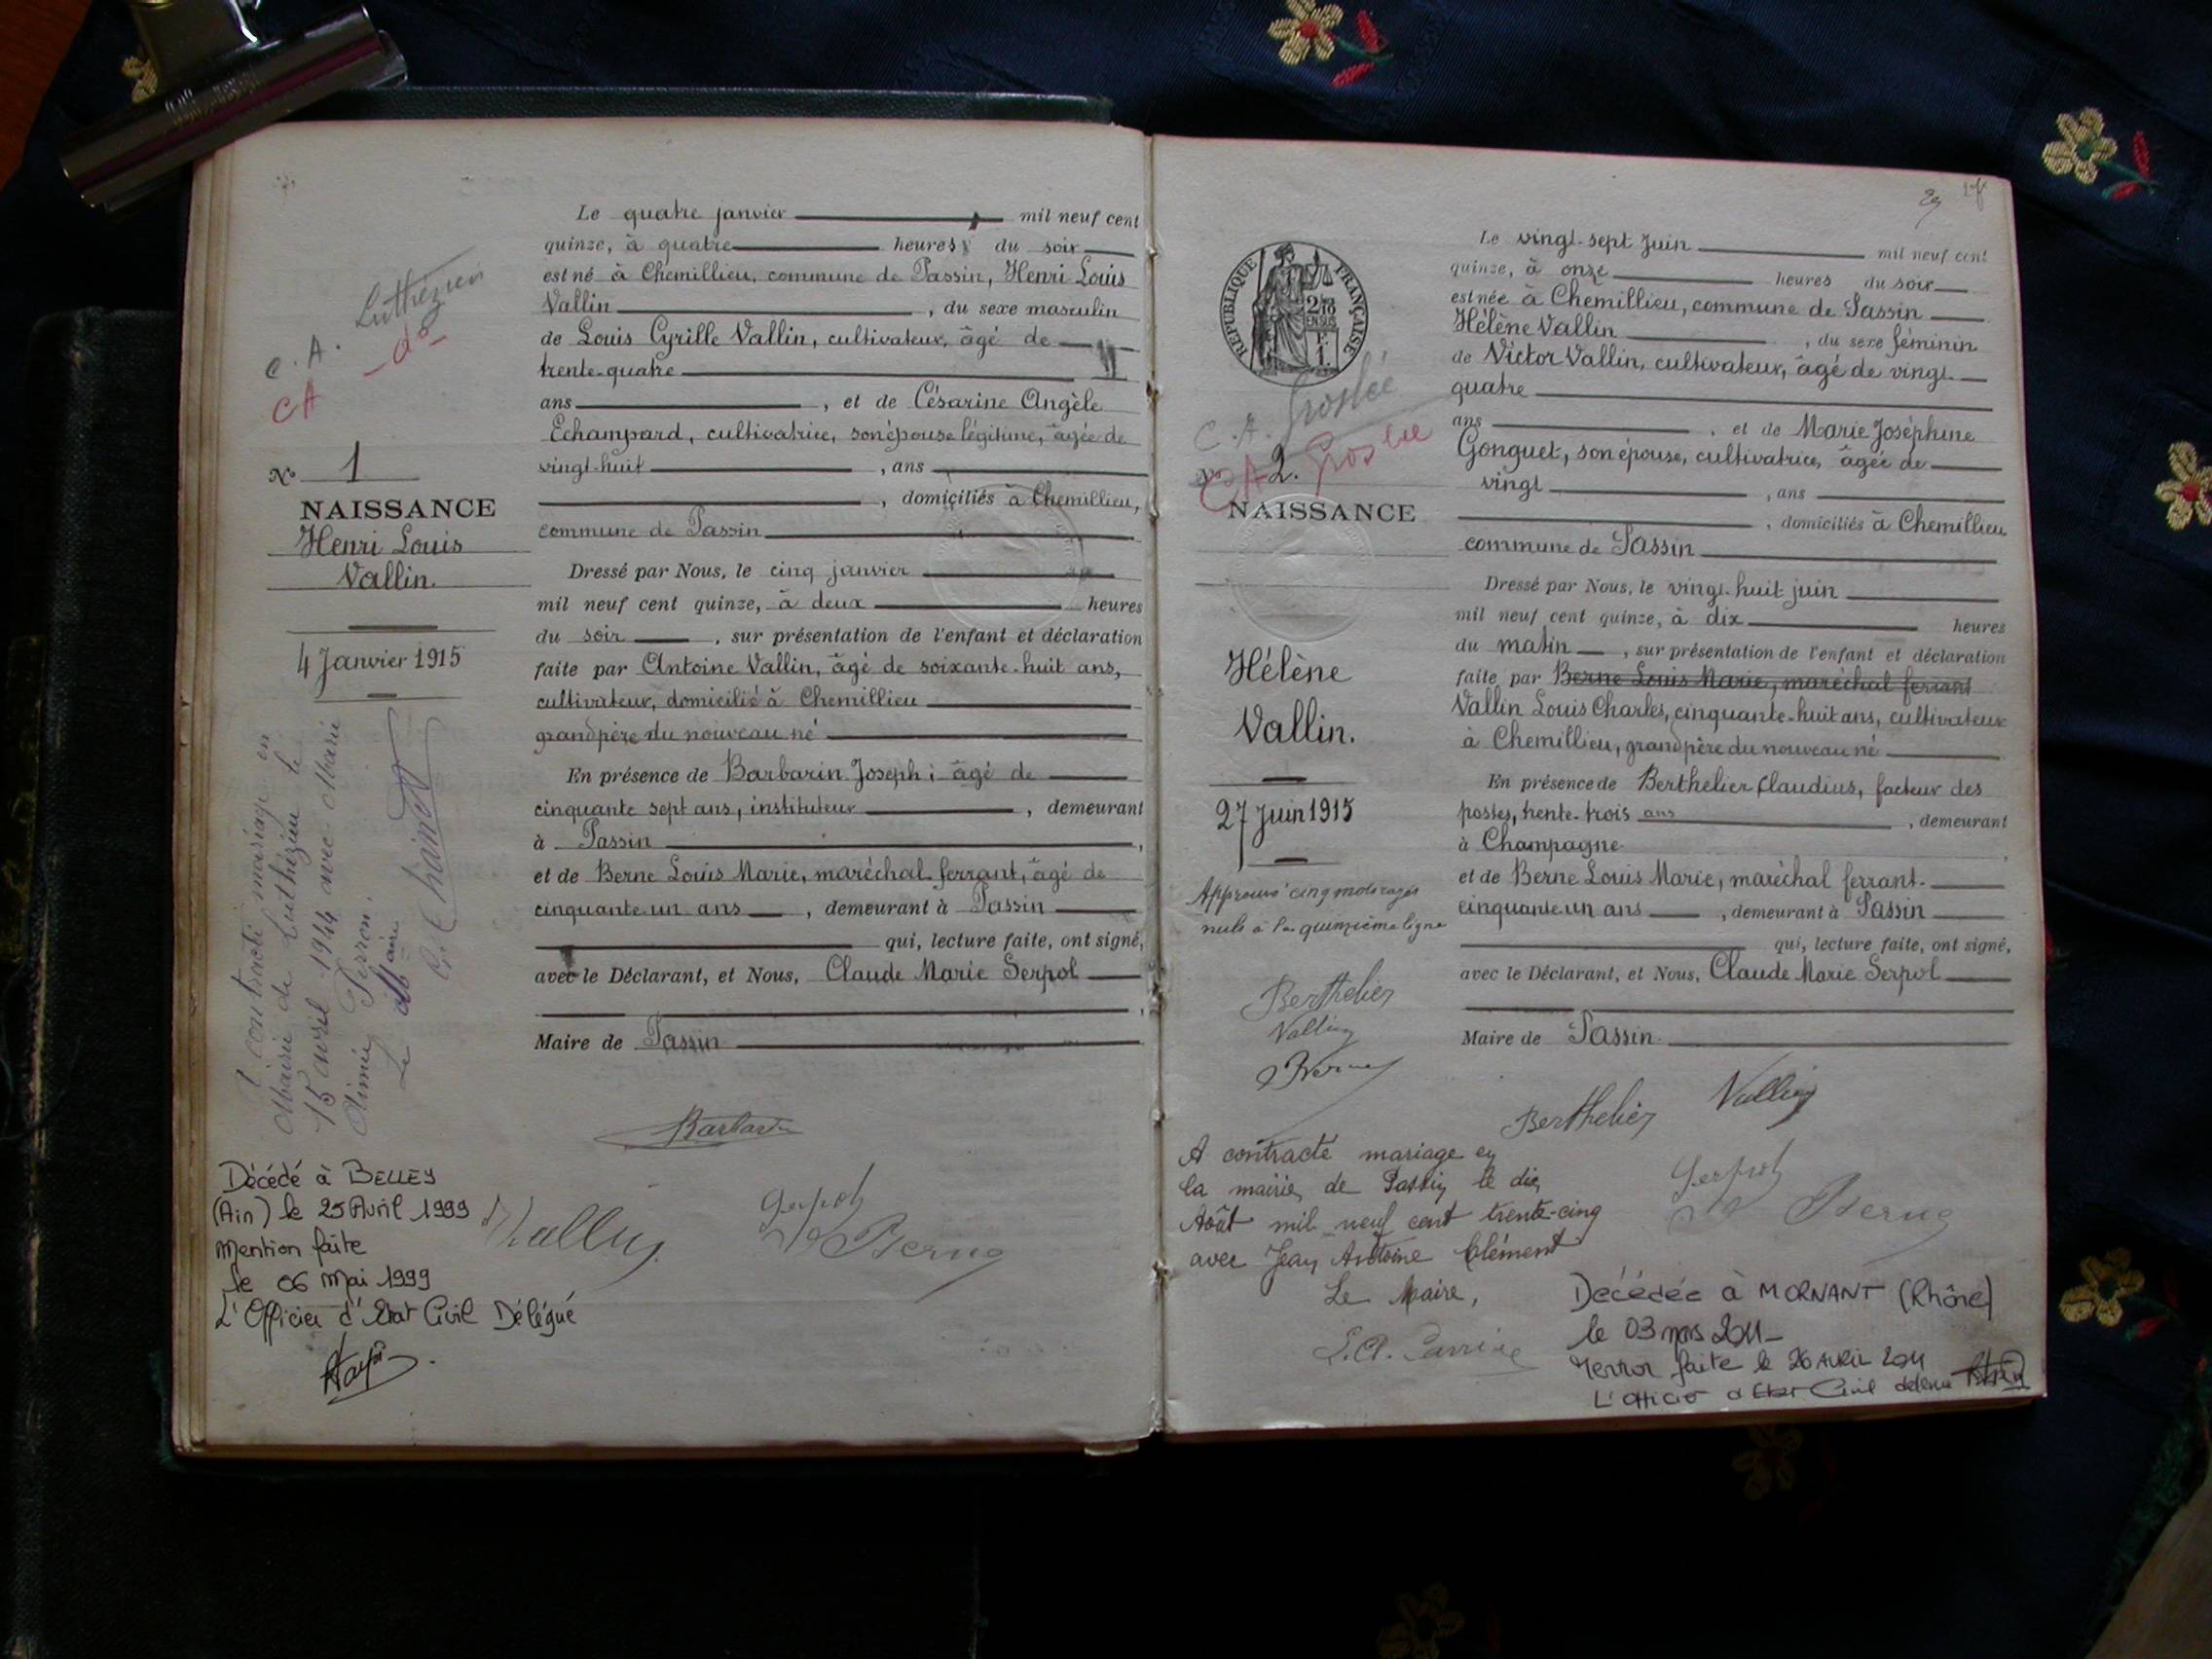 Le quatre janvier mil neuf cent
quinze, à quatre heures du soir
est né à Chemillieu, commune de Passin, Henri Louis
Vallin, du sexe masculin
de Louis Cyrille Vallin, cultivateur, âgé de
trente-quatre
ans, et de Césarine Angèle
Echampard, cultivatrice, son épouse légitime, âgée de
vingt-huit, ans
, domiciliés à Chemillieu,
commune de Passin
Dressé par Nous, le cinq janvier
mil neuf cent quinze, à deux heures
du soir, sur présentation de l'enfant et déclaration
faite par Antoine Vallin, âgé de soixante-huit ans,
cultivateur, domicilié à Chemillieu
grand père du nouveau né
En présence de Barbarin Joseph ; âgé de
cinquante sept ans, instituteur, demeurant
à Passin,
et de Berne Louis Marie, maréchal ferrant, âgé de
cinquante-un ans, demeurant à Passin
qui, lecture faite, ont signé,
avec le Déclarant, et Nous, Claude Marie Serpol
,
Maire de Passin
C. A. Luthézieu
CA - d° -
N° 1
NAISSANCE
Henri Louis
Vallin.
4 Janvier 1915
A contracté mariage en
Mairie de Luthézieu le
15 avril 1944 avec Marie
Aimée
Le Maire
Barbarin
Vallin
Serpol
Berne
Décédé à BELLEY
(Ain) le 25 Avril 1999
Mention faite
le 06 Mai 1999
L'Officier d'Etat Civil Délégué
29
Le vingt-sept Juin mil neuf cent
quinze, à onze heures du soir
est née à Chemillieu, commune de Passin
Hélène Vallin, du sexe féminin
de Victor Vallin, cultivateur, âgé de vingt
quatre
ans, et de Marie Joséphine
Gonguet, son épouse, cultivatrice, âgée de
vingt, ans
, domiciliés à Chemillieu
commune de Passin
Dressé par Nous, le vingt-huit juin
mil neuf cent quinze, à dix heures
du matin, sur présentation de l'enfant et déclaration
faite par Berne Louis Marie, maréchal ferrant
Vallin Louis Charles, cinquante-huit ans, cultivateur
à Chemillieu, grand père du nouveau né
En présence de Berthelier Claudius, facteur des
postes, trente-trois ans, demeurant
à Champagne,
et de Berne Louis Marie, maréchal ferrant
cinquante-un ans, demeurant à Passin
qui, lecture faite, ont signé,
avec le Déclarant, et Nous, Claude Marie Serpol
Maire de Passin.
RÉPUBLIQUE FRANÇAISE
C. A. Groslée
CA Groslee
N° 2.
NAISSANCE
Hélène
Vallin.
27 Juin 1915
Approuvé cinq mots rayés
nuls à la quinzième ligne
Berthelier
Vallin
Berne
Berthelier
Vallin
Serpol
Berne
A contracté mariage en
la mairie de Passin le dix
Août mil neuf cent trente-cinq
avec Jean Antoine Clément
Le Maire,
Décédée à MORNANT (Rhône)
le 03 mars 2011
Mention faite le 26 AVRIL 2011
L'officier d'Etat Civil délégué